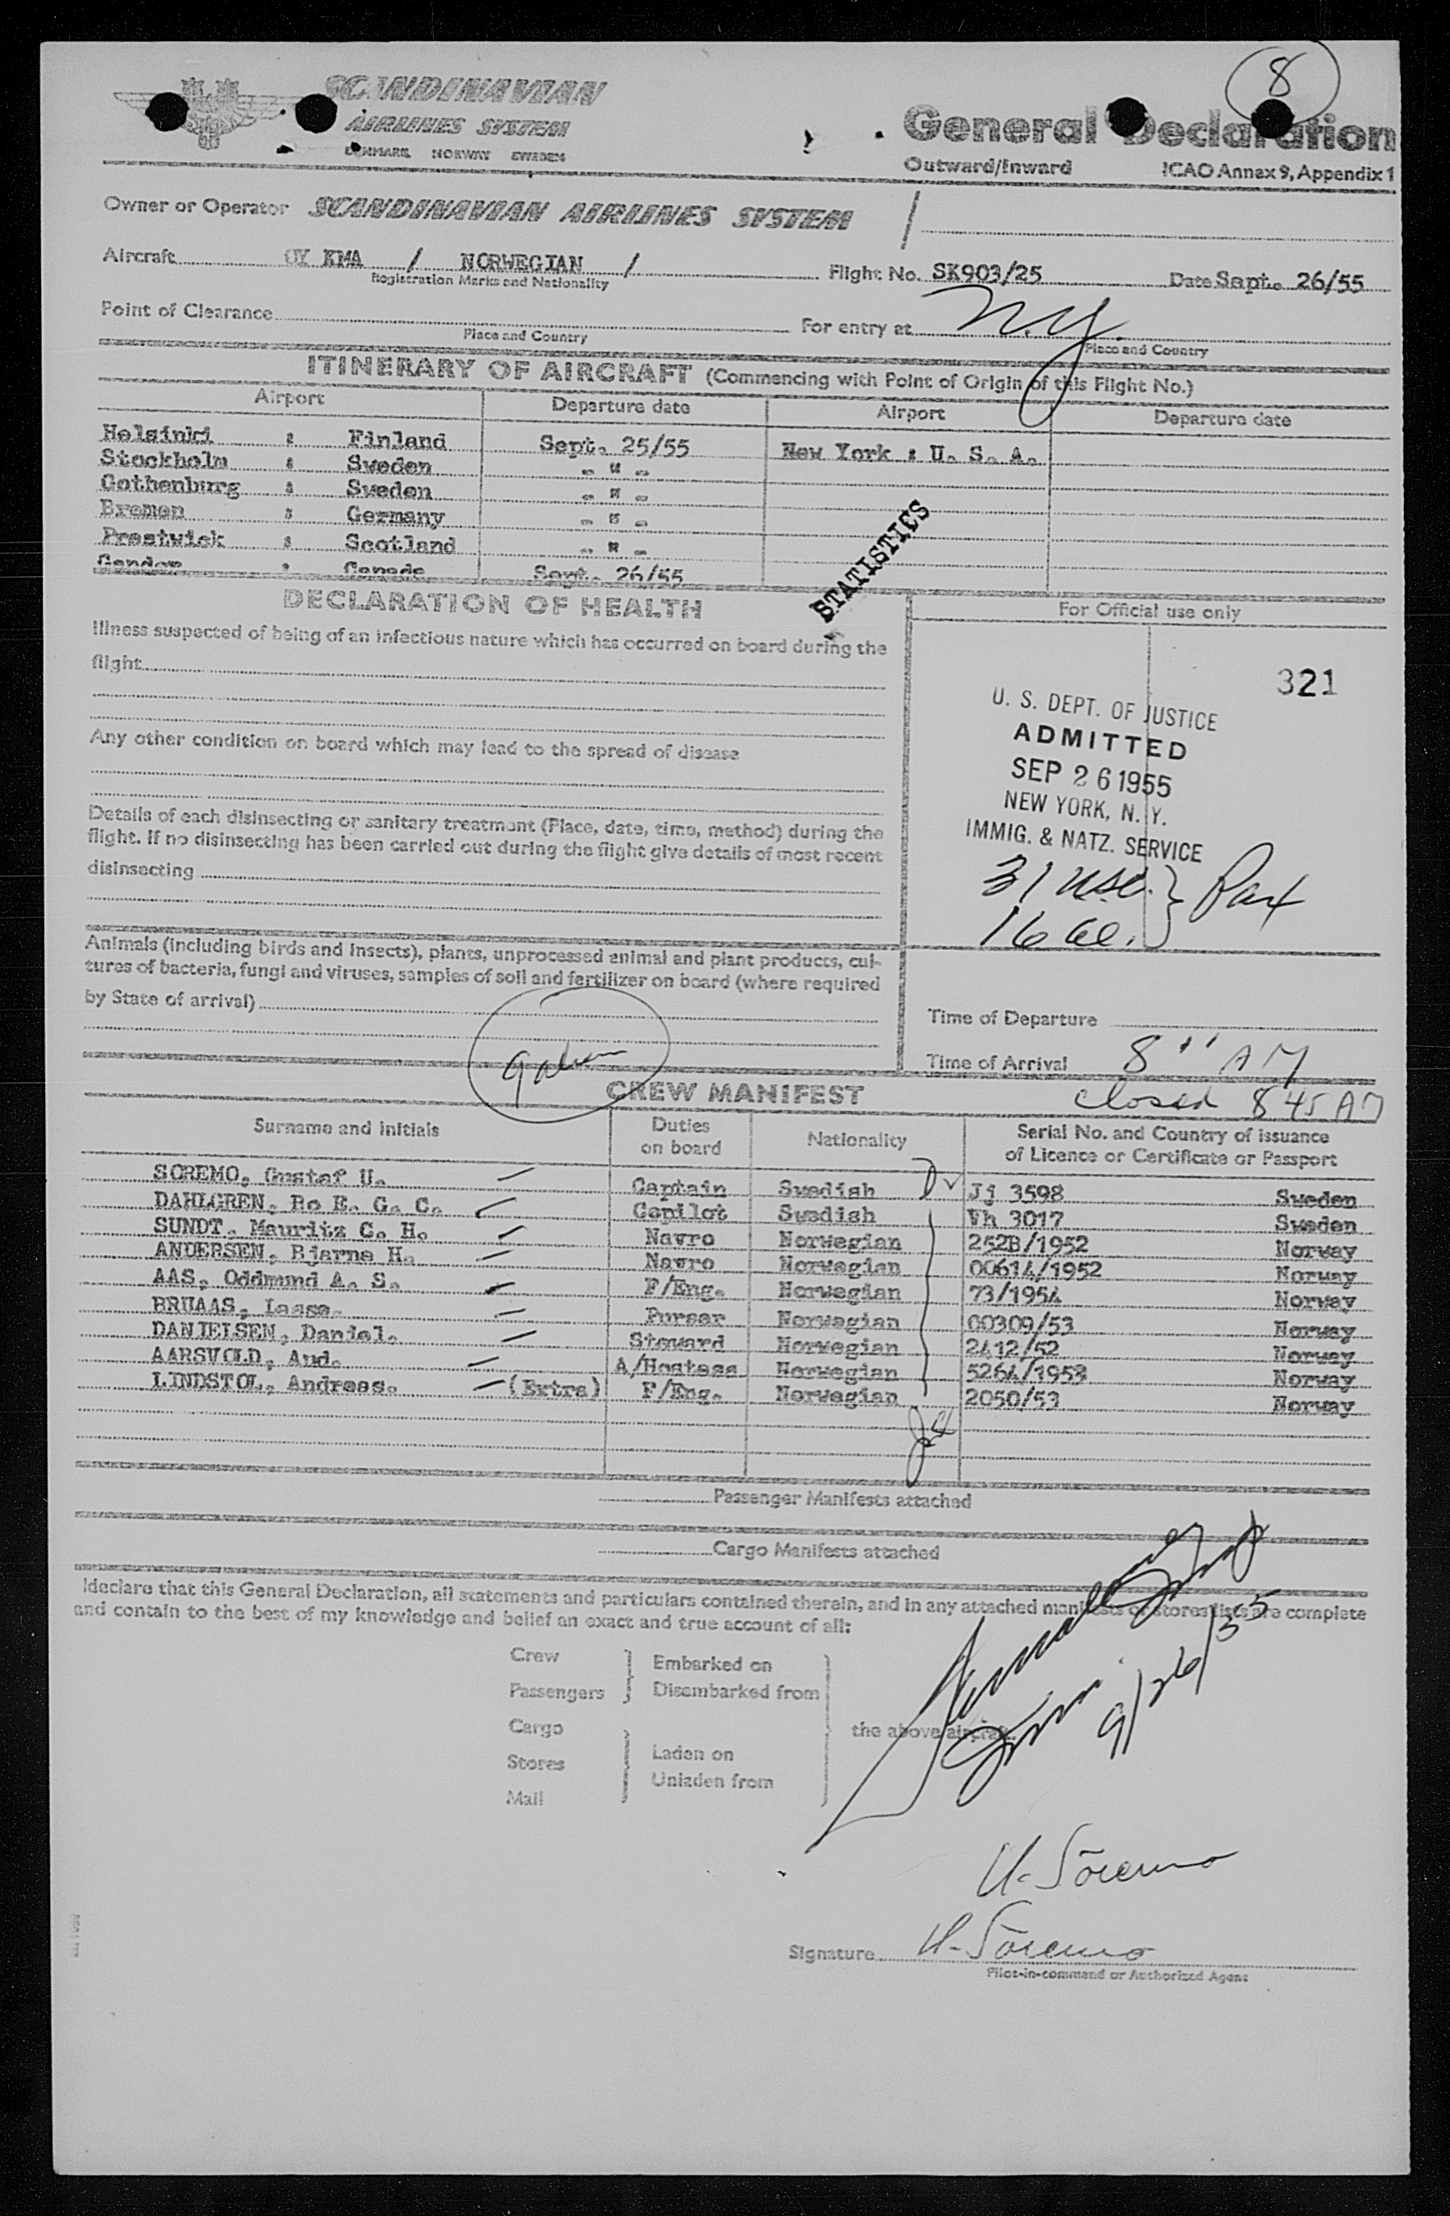 8
SCANDINAVIAN
AIRLINES SYSTEM
DENMARK NORWAY SWEDEN
General Declaration
Outward/Inward ICAO Annex 9, Appendix 1
Owner or Operator SCANDINAVIAN AIRLINES SYSTEM /
Aircraft OY KMA / NORWEGIAN / Flight No. SK903/25 Date Sept. 26/55
Registration Marks and Nationality
Point of Clearance For entry at N.Y.
Place and Country Place and Country
ITINERARY OF AIRCRAFT (Commencing with Point of Origin of this Flight No.)
Airport Departure date Airport Departure date
Helsinki : Finland Sept. 25/55 New York : U. S. A.
Stockholm : Sweden - " -
Gothenburg : Sweden - " -
Bremen : Germany - " -
Prestwick : Scotland - " -
Gander : Canada Sept. 26/55
STATISTICS
DECLARATION OF HEALTH
For Official use only
Illness suspected of being of an infectious nature which has occurred on board during the
flight
Any other condition on board which may lead to the spread of disease
Details of each disinsecting or sanitary treatment (Place, date, time, method) during the
flight. If no disinsecting has been carried out during the flight give details of most recent
disinsecting
Animals (including birds and insects), plants, unprocessed animal and plant products, cul-
tures of bacteria, fungi and viruses, samples of soil and fertilizer on board (where required
by State of arrival)
321
U. S. DEPT. OF JUSTICE
ADMITTED
SEP 26 1955
NEW YORK, N. Y.
IMMIG. & NATZ. SERVICE
31 USC. } Pax
16 al.
Time of Departure
Time of Arrival 8 11 AM
closed 8 45 AM
CREW MANIFEST
Surname and initials Duties on board Nationality Serial No. and Country of issuance of Licence or Certificate or Passport
SOREMO, Gustaf U. Captain Swedish Jj 3598 Sweden
DAHLGREN, Bo E. G. C. Copilot Swedish Vh 3017 Sweden
SUNDT, Mauritz C. H. Navro Norwegian 252B/1952 Norway
ANDERSEN, Bjarne H. Navro Norwegian 00614/1952 Norway
AAS, Oddmund A. S. F/Eng. Norwegian 73/1954 Norway
BRUAAS, Lasse. Purser Norwegian 00309/53 Norway
DANIELSEN, Daniel. Steward Norwegian 2412/52 Norway
AARSVOLD, Aud. A/Hostess Norwegian 5264/1953 Norway
LINDSTOL, Andreas. (Extra) F/Eng. Norwegian 2050/53 Norway
Passenger Manifests attached
Cargo Manifests attached
I declare that this General Declaration, all statements and particulars contained therein, and in any attached manifests or stores lists are complete
and contain to the best of my knowledge and belief an exact and true account of all:
Crew } Embarked on
Passengers } Disembarked from
Cargo
the above aircraft.
Stores } Laden on
Unladen from
Mail
9/26/55
U. Söremo
Signature U. Söremo
Pilot-in-command or Authorized Agent